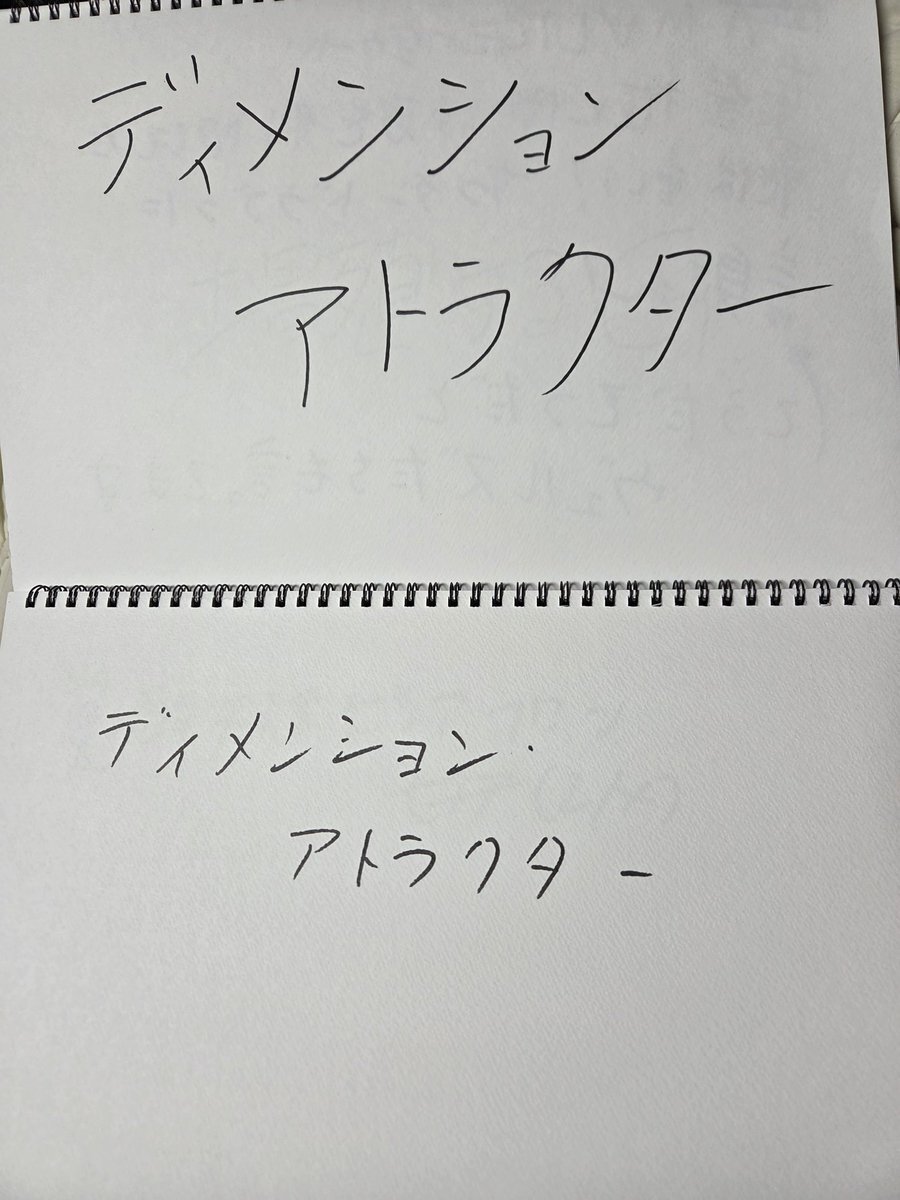 ディメンション
アトラクター
ディメンション・
アトラクター